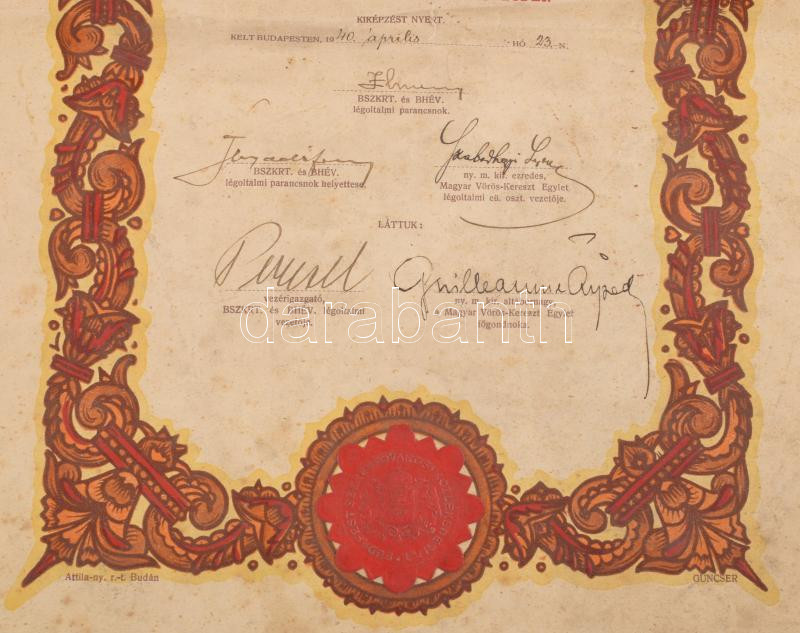 KIKÉPZÉST NYERT.
KELT BUDAPESTEN, 1940. április HÓ 23.-N.
BSZKRT. és BHÉV.
légoltalmi parancsnok.
BSZKRT. és BHÉV.
légoltalmi parancsnok helyettese.
ny. m. kir. ezredes,
Magyar Vörös-Kereszt Egylet
légoltalmi eü. oszt. vezetője.
LÁTTUK:
vezérigazgató,
BSZKRT. és BHÉV. légoltalmi
vezetője.
Guilleaume Árpád
ny. m. kir. altábornagy,
a Magyar Vörös-Kereszt Egylet
főgondnoka.
darabanth
Attila-ny. r.-t. Budán
GÜNCSER